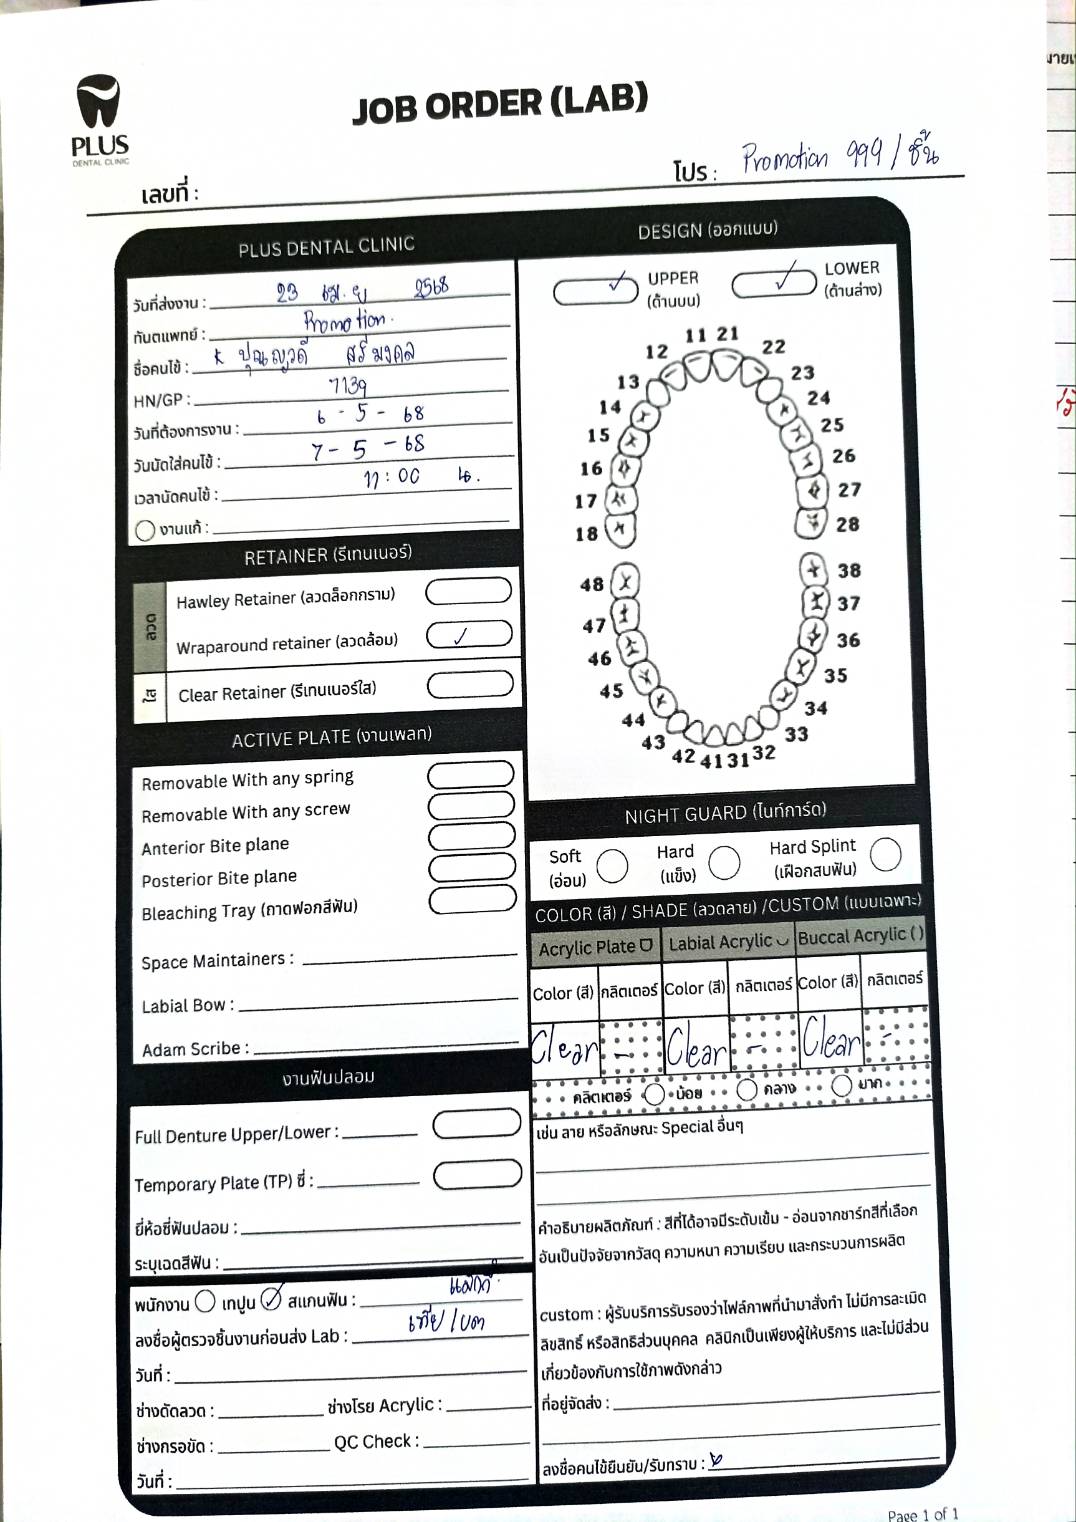 JOB ORDER (LAB)
PLUS
DENTAL CLINIC
โปร : Promotion 999 / ชิ้น
เลขที่ :
PLUS DENTAL CLINIC
วันที่ส่งงาน : 23 เม.ย 2568
ทันตแพทย์ : Promotion.
ชื่อคนไข้ : K ปุณญวดี ศรีมงคล
HN/GP : 7139
วันที่ต้องการงาน : 6 - 5 - 68
วันนัดใส่คนไข้ : 7 - 5 - 68
เวลานัดคนไข้ : 17 : 00 น.
งานแก้ :
RETAINER (รีเทนเนอร์)
ลวด
Hawley Retainer (ลวดล็อกกราม)
Wraparound retainer (ลวดล้อม) ✓
ใส
Clear Retainer (รีเทนเนอร์ใส)
ACTIVE PLATE (งานเพลท)
Removable With any spring
Removable With any screw
Anterior Bite plane
Posterior Bite plane
Bleaching Tray (ถาดฟอกสีฟัน)
Space Maintainers :
Labial Bow :
Adam Scribe :
งานฟันปลอม
Full Denture Upper/Lower :
Temporary Plate (TP) ซี่ :
ยี่ห้อซี่ฟันปลอม :
ระบุเฉดสีฟัน :
พนักงาน เทปูน ✓ สแกนฟัน :
ลงชื่อผู้ตรวจชิ้นงานก่อนส่ง Lab :
วันที่ :
ช่างดัดลวด : ช่างโรย Acrylic :
ช่างกรอขัด : QC Check :
วันที่ :
DESIGN (ออกแบบ)
✓ UPPER ✓ LOWER
(ด้านบน) (ด้านล่าง)
11 21
12 22
13 23
14 24
15 25
16 26
17 27
18 28
48 38
47 37
46 36
45 35
44 34
43 33
42 41 31 32
NIGHT GUARD (ไนท์การ์ด)
Soft Hard Hard Splint
(อ่อน) (แข็ง) (เฝือกสบฟัน)
COLOR (สี) / SHADE (ลวดลาย) /CUSTOM (แบบเฉพาะ)
Acrylic Plate Labial Acrylic Buccal Acrylic ( )
Color (สี) กลิตเตอร์ Color (สี) กลิตเตอร์ Color (สี) กลิตเตอร์
Clear - Clear - Clear -
กลิตเตอร์ น้อย กลาง มาก
เช่น ลาย หรือลักษณะ Special อื่นๆ
คำอธิบายผลิตภัณฑ์ : สีที่ได้อาจมีระดับเข้ม - อ่อนจากชาร์ทสีที่เลือก
อันเป็นปัจจัยจากวัสดุ ความหนา ความเรียบ และกระบวนการผลิต
custom : ผู้รับบริการรับรองว่าไฟล์ภาพที่นำมาสั่งทำ ไม่มีการละเมิด
ลิขสิทธิ์ หรือสิทธิส่วนบุคคล คลินิกเป็นเพียงผู้ให้บริการ และไม่มีส่วน
เกี่ยวข้องกับการใช้ภาพดังกล่าว
ที่อยู่จัดส่ง :
ลงชื่อคนไข้ยืนยัน/รับทราบ :
Page 1 of 1